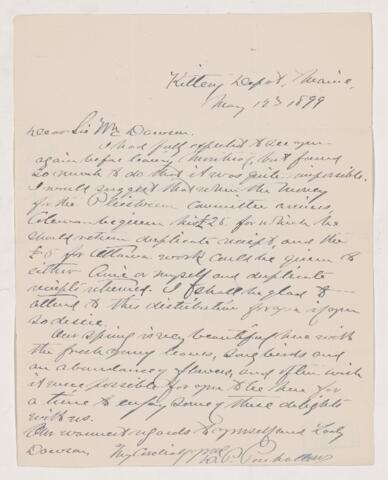 Kittery Depot, Maine,
May 13th 1899
Dear Sir Wm Dawson.
I had full expected to see you
again before leaving Montreal, but found
so much to do that it was quite impossible.
I would suggest that when the money
for the Pleistocene Committee arrives,
Coleman be given his £25 for which he
should return duplicate receipt, and the
£5 for Ottawa work could be given to
either Ami or myself and duplicate
receipts returned. I shall be glad to
attend to this distribution for you if you
so desire.
Our spring is very beautiful here with
the fresh young leaves, song birds and
an abundance of flowers, and often wish
it were possible for you to be here for
a time to enjoy some of these delights
with us.
Our warmest regards to yourself and Lady
Dawson. Very cordially yrs
D. P. Penhallow